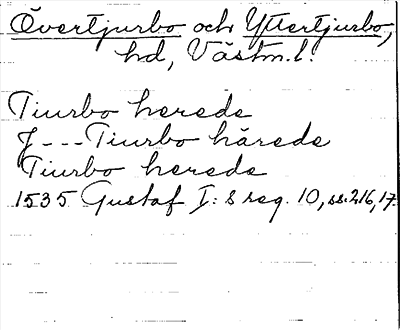 Övertjurbo och Yttertjurbo,
hd, Västm.l.
Tiurbo herede
J---Tiurbo härede
Tiurbo herede
1535 Gustaf I:s reg. 10, ss.216, 17.